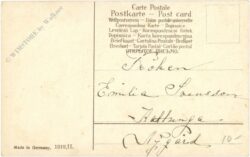 Carte Postale
Postkarte — Post card
Weltpostverein — Union postale universelle
Correspondenz Karte — Dopisnice
Levelező Lap — Korespondenční lístek
Dopisnica — Karta korespondencyjna
Briefkaart — Cartolina Postale — Brefkort
Brevkort — Tarjeta Postal — Cartão postal
Fröken
Emilia Svensson
Nygård
Made in Germany.